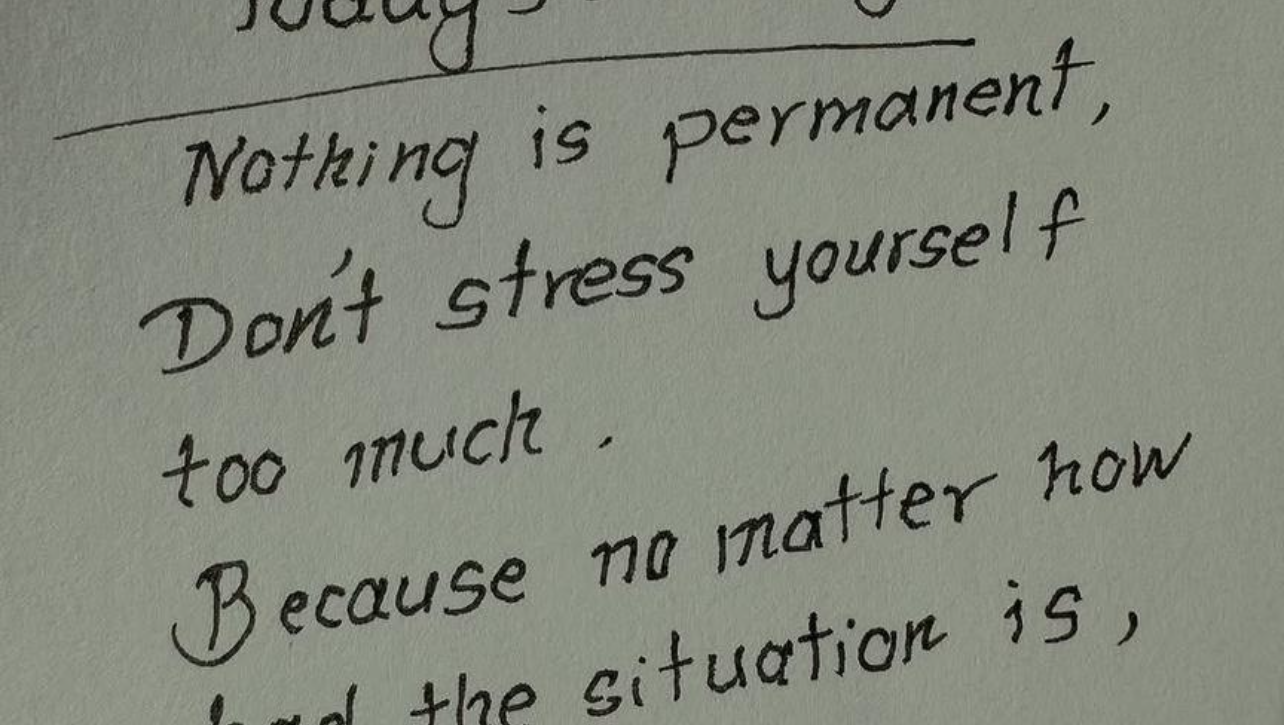 Today's
Nothing is permanent,
Don't stress yourself
too much.
Because no matter how
bad the situation is,